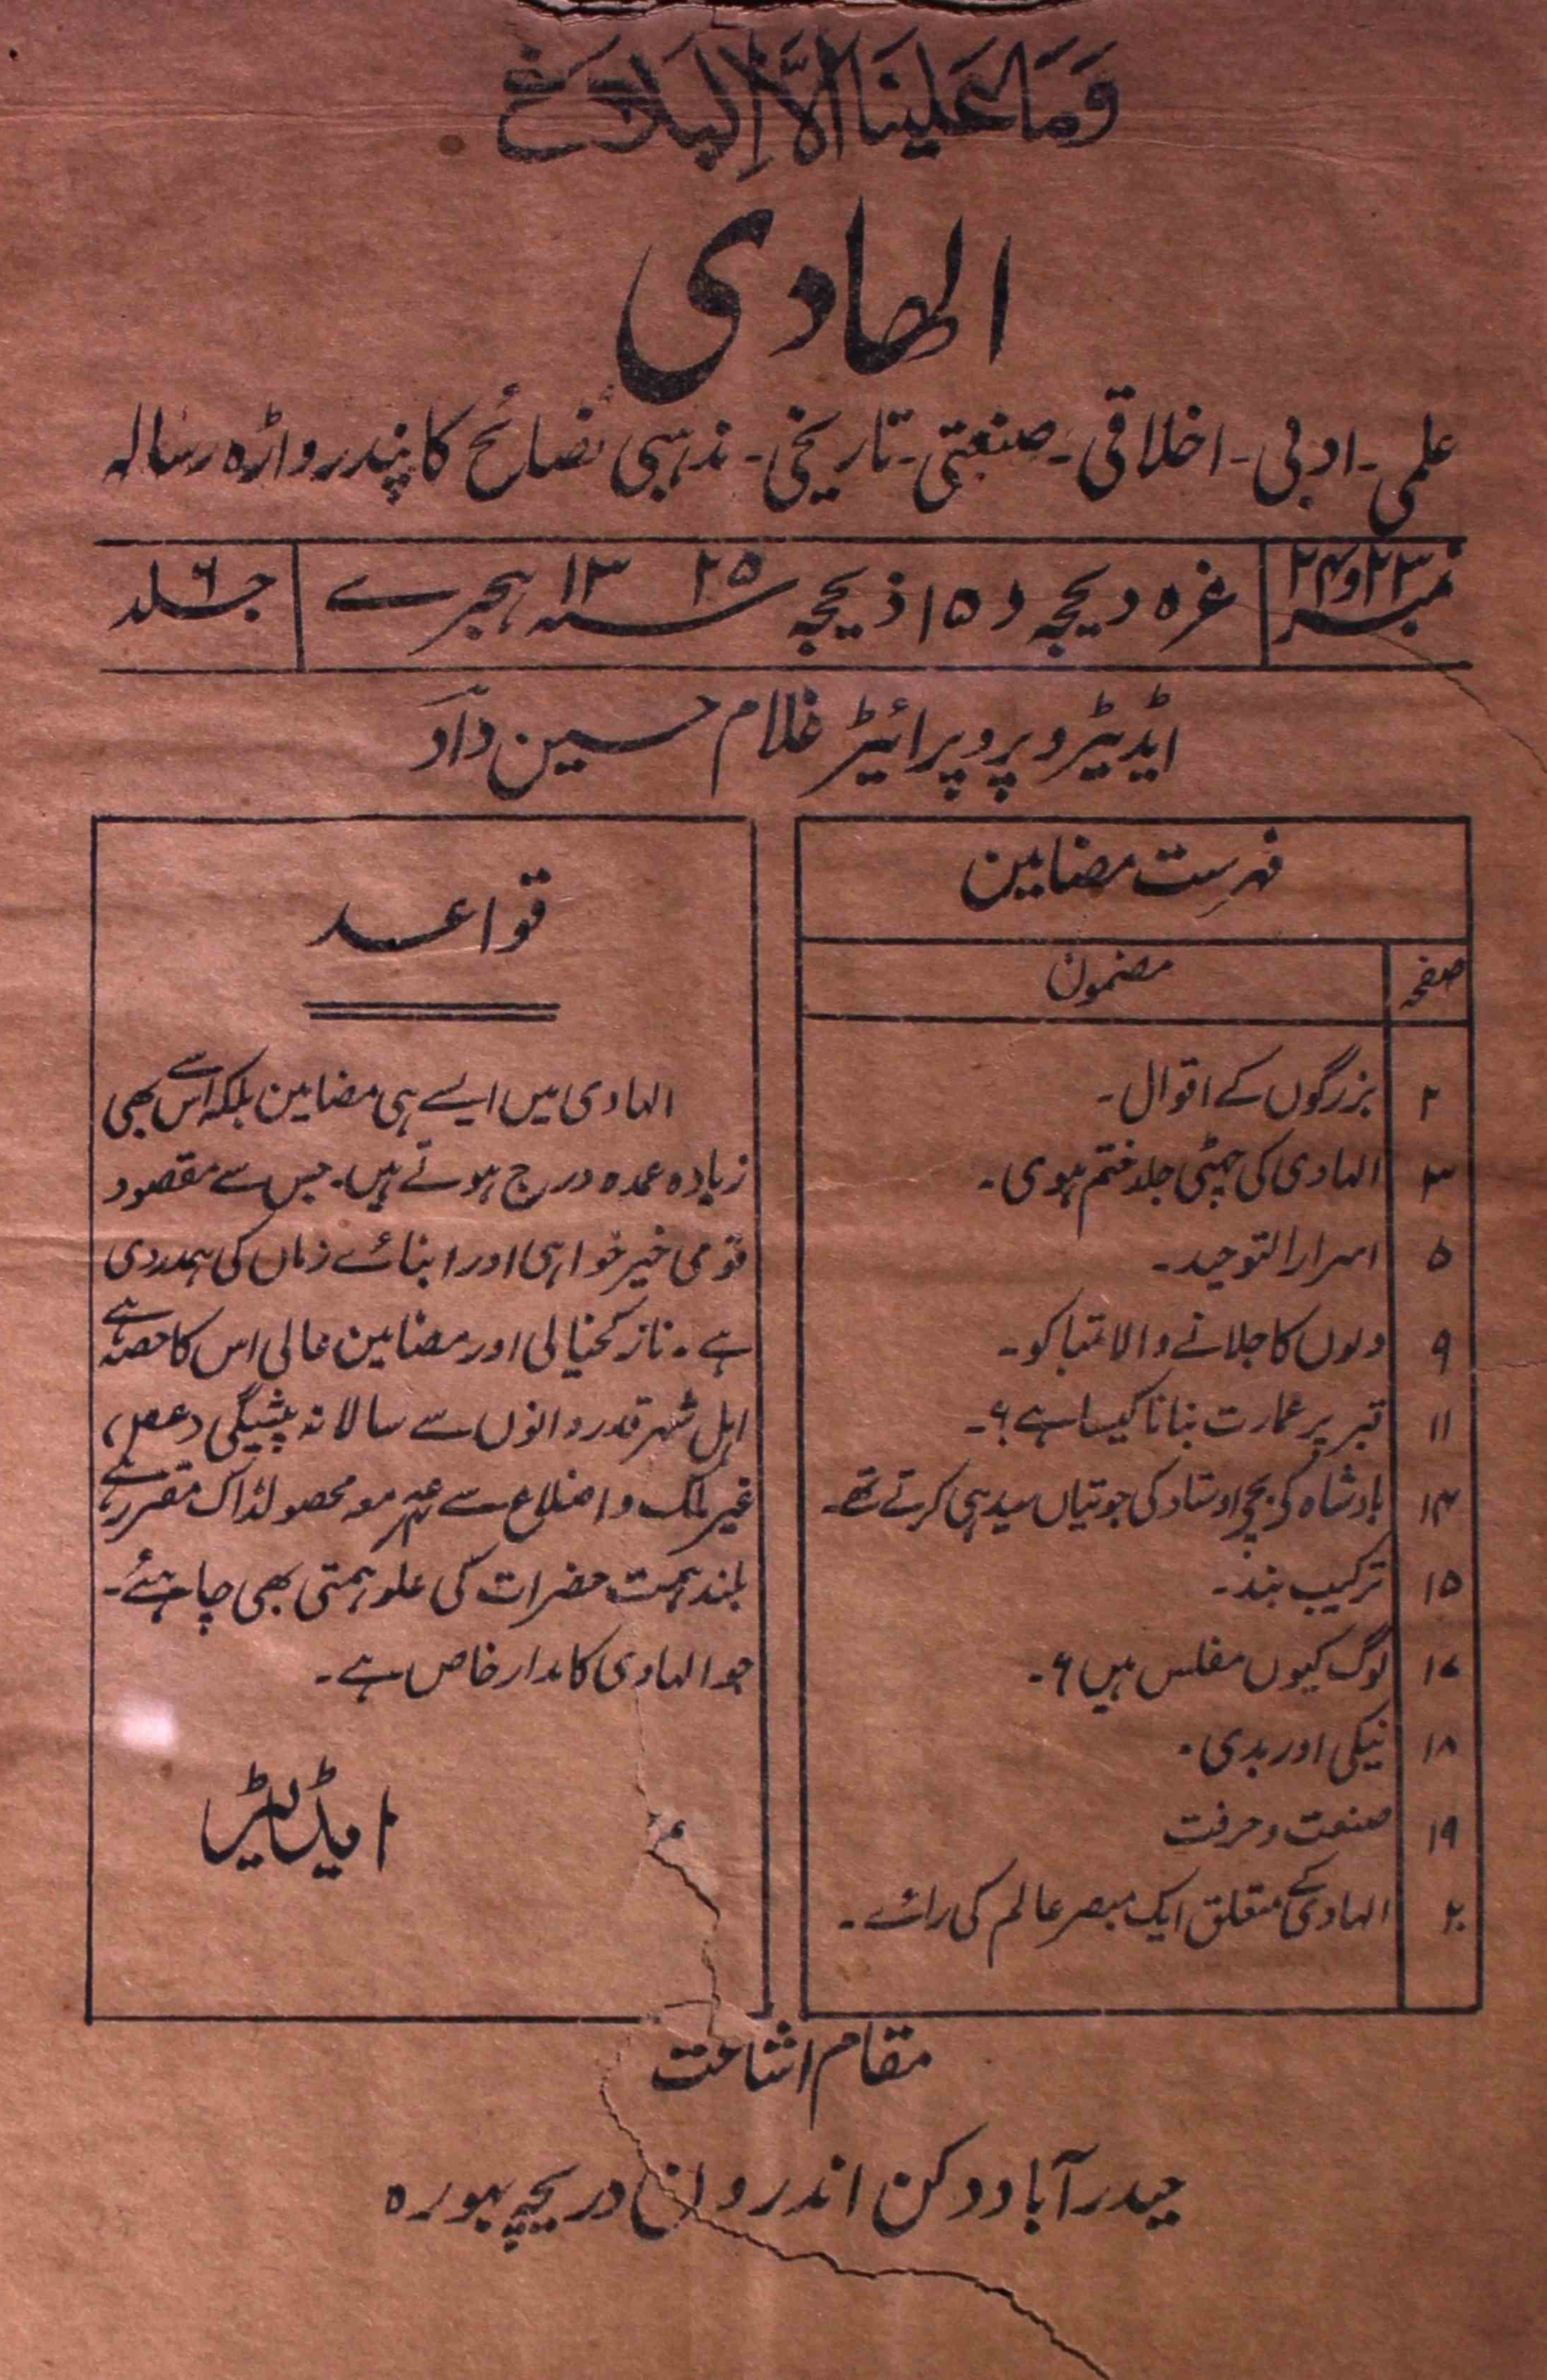 وَمَا عَلَینَا اِلَّا البَلَاغ
الهادی
علمی۔ ادبی۔ اخلاقی۔ صنعتی۔ تاریخی۔ مذہبی نصائح کا پندرواڑہ رسالہ
نمبر ۲۳ و ۲۴
غرہ دیحجہ و ۱۵ ذیحجہ سنہ ۱۳۲۵ ہجرے
جلد ۶
ایڈیٹر و پروپرائیٹر غلام حسین داؔد
فہرست مضامین
صفحہ مضمون
۲ بزرگوں کے اقوال۔
۳ الہادی کی چھٹی جلد ختم ہوی۔
۵ اسرار التوحید۔
۹ دلوں کا جلانے والا تمباکو۔
۱۱ قبر پر عمارت بنانا کیسا ہے ؟۔
۱۴ بادشاہ کے بچے اوستاد کی جوتیاں سیدہی کرتے تھے۔
۱۵ ترکیب بند۔
۱۷ لوگ کیوں مفلس ہیں ؟۔
۱۸ نیکی اور بدی۔
۱۹ صنعت و حرفت
۲۰ الہادی کے متعلق ایک مبصر عالم کی رائے۔
قواعد
الہادی میں ایسے ہی مضامین بلکہ اس سے بھی
زیادہ عمدہ درج ہوتے ہیں۔ جس سے مقصود
قومی خیر خواہی اور ابنائے زماں کی ہمدردی
ہے۔ نازکخیالی اور مضامین عالی اس کا حصہ ہے
اہل شہر قدر دانوں سے سالانہ پیشگی
غیر ملک و اضلاع سے معہ محصولڈاک مقرر ہے
بلند ہمت حضرات کی علو ہمتی بھی چاہئے۔
جو الہادی کا مدار خاص ہے۔
ایڈیٹر
مقام اشاعت
حیدرآباد دکن اندرون دریچہ بورہ